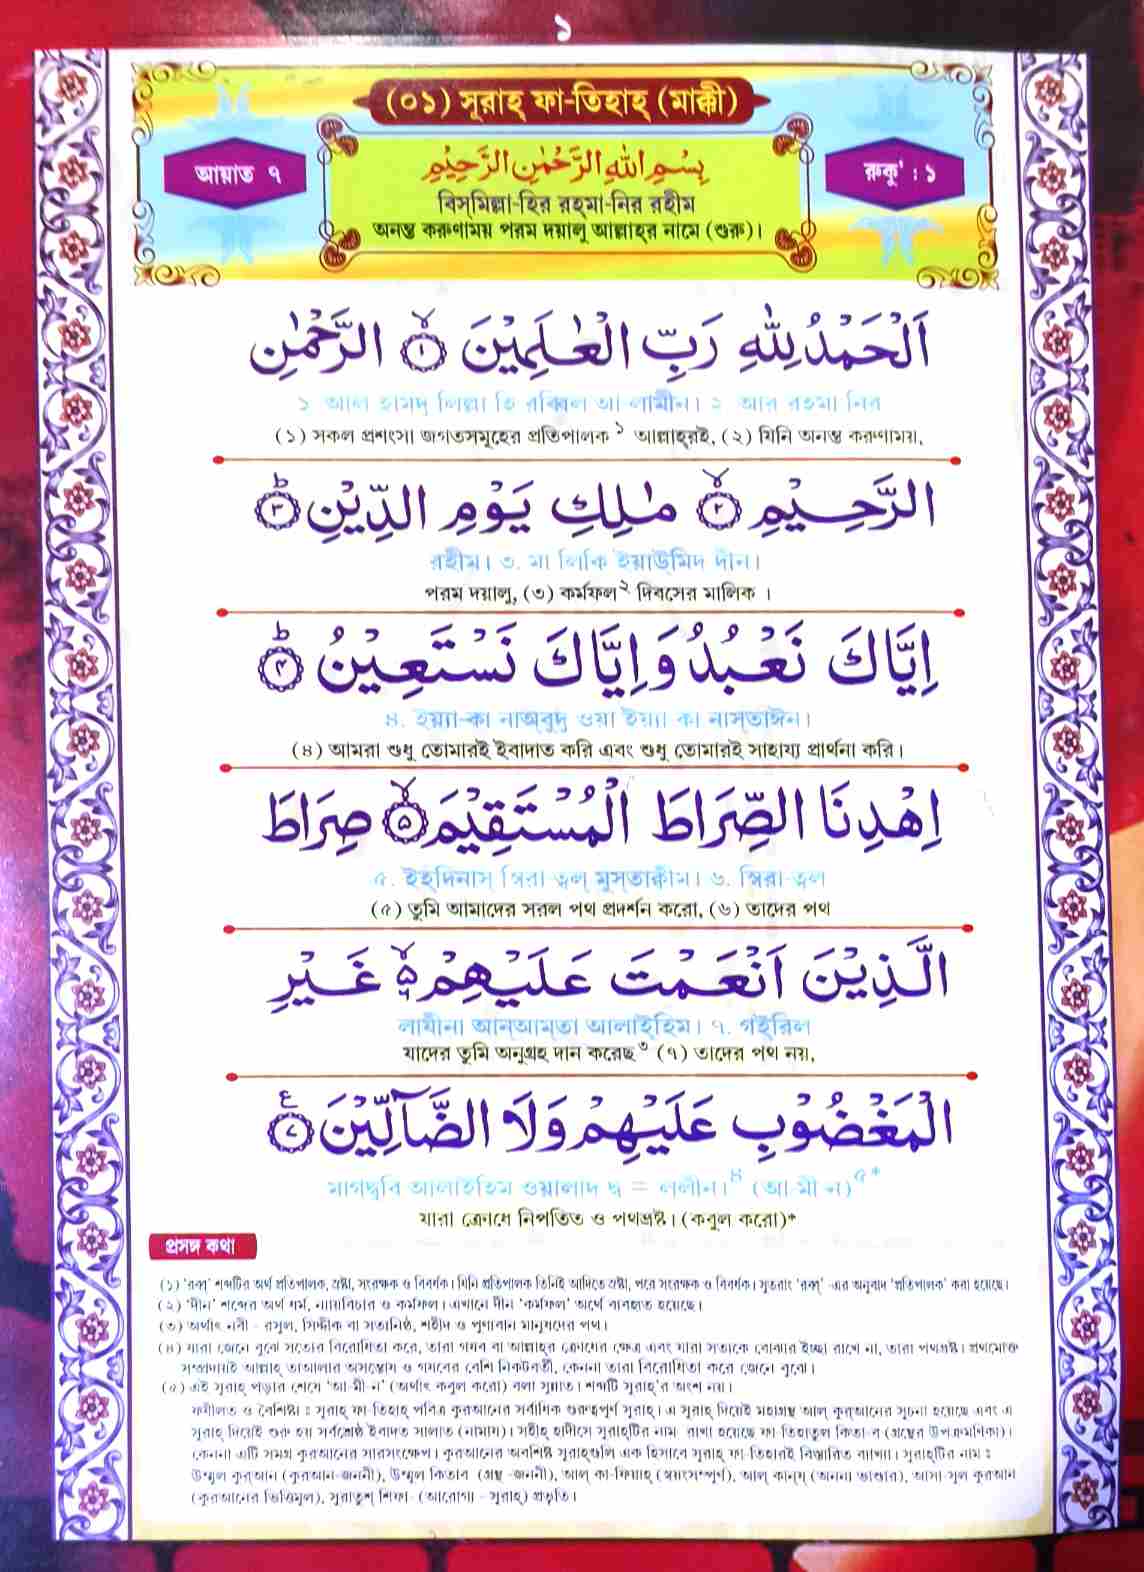 ১
(০১) সূরাহ্ ফা-তিহাহ্ (মাক্কী)
আয়াত ৭
بِسْمِ اللهِ الرَّحْمٰنِ الرَّحِيْمِ
রুকূ' : ১
বিস্‌মিল্লা-হির রহ্‌মা-নির রহীম
অনন্ত করুণাময় পরম দয়ালু আল্লাহ্‌র নামে (শুরু)।
اَلْحَمْدُ لِلّٰهِ رَبِّ الْعٰلَمِيْنَ ۙ﴿١﴾ الرَّحْمٰنِ
১ আল হামদু লিল্লা হি রব্বিল আ লামীন। ২ আর রহমা নির
(১) সকল প্রশংসা জগতসমূহের প্রতিপালক ১ আল্লাহ্‌রই, (২) যিনি অনন্ত করুণাময়,
الرَّحِيْمِ ۙ﴿٢﴾ مٰلِكِ يَوْمِ الدِّيْنِ ؕ﴿٣﴾
রহীম। ৩. মা লিকি ইয়াউমিদ দীন।
পরম দয়ালু, (৩) কর্মফল ২ দিবসের মালিক ।
اِيَّاكَ نَعْبُدُ وَاِيَّاكَ نَسْتَعِيْنُ ؕ﴿۴﴾
৪. ইয়্যা-কা না'অ্‌বুদু ওয়া ইয়্যা কা নাস্‌তাঈন।
(৪) আমরা শুধু তোমারই ইবাদাত করি এবং শুধু তোমারই সাহায্য প্রার্থনা করি।
اِهْدِنَا الصِّرَاطَ الْمُسْتَقِيْمَ ۙ﴿۵﴾ صِرَاطَ
৫. ইহ্‌দিনাস্ স্বিরা-ত্বল্ মুস্‌তাক্বীম। ৬. স্বিরা-ত্বল
(৫) তুমি আমাদের সরল পথ প্রদর্শন করো, (৬) তাদের পথ
الَّذِيْنَ اَنْعَمْتَ عَلَيْهِمْ ۙ۵ غَيْرِ
লাযীনা আন্আম্‌তা আলাইহিম। ৭. গইরিল
যাদের তুমি অনুগ্রহ দান করেছ ৩ (৭) তাদের পথ নয়,
الْمَغْضُوْبِ عَلَيْهِمْ وَلَا الضَّآلِّيْنَ ع﴿٧﴾
মাগদ্বূবি আলাইহিম ওয়ালাদ দ্ব = ললীন।৪ (আ-মী ন)৫*
যারা ক্রোধে নিপতিত ও পথভ্রষ্ট। (কবুল করো)*
প্রসঙ্গ কথা
(১) 'রব্ব' শব্দটির অর্থ প্রতিপালক, স্রষ্টা, সংরক্ষক ও বিবর্ধক। যিনি প্রতিপালক তিনিই আদিতে স্রষ্টা, পরে সংরক্ষক ও বিবর্ধক। সুতরাং 'রব্ব' -এর অনুবাদ 'প্রতিপালক' করা হয়েছে।
(২) 'দীন' শব্দের অর্থ ধর্ম, ন্যায়বিচার ও কর্মফল। এখানে দীন 'কর্মফল' অর্থে ব্যবহৃত হয়েছে।
(৩) অর্থাৎ নবী - রসূল, সিদ্দীক বা সত্যনিষ্ঠ, শহীদ ও পুণ্যবান মানুষদের পথ।
(৪) যারা জেনে বুঝে সত্যের বিরোধিতা করে, তারা গযব বা আল্লাহ্‌র ক্রোধের ক্ষেত্র এবং যারা সত্যকে বোঝার ইচ্ছা রাখে না, তারা পথভ্রষ্ট। প্রথমোক্ত
সম্প্রদায়ই আল্লাহ্ তাআলার অসন্তোষ ও গযবের বেশি নিকটবর্তী, কেননা তারা বিরোধিতা করে জেনে বুঝে।
(৫) এই সূরাহ্ পড়ার শেষে 'আ-মী-ন' (অর্থাৎ কবুল করো) বলা সুন্নাত। শব্দটি সূরাহ্'র অংশ নয়।
ফযীলত ও বৈশিষ্ট্য : সূরাহ্ ফা-তিহাহ্ পবিত্র কুরআনের সর্বাধিক গুরুত্বপূর্ণ সূরাহ্। এ সূরাহ্ দিয়েই মহাগ্রন্থ আল্ কুরআনের সূচনা হয়েছে এবং এ
সূরাহ্ দিয়েই শুরু হয় সর্বশ্রেষ্ঠ ইবাদত সালাত (নামায)। সহীহ্ হাদীসে সূরাহ্‌টির নাম রাখা হয়েছে ফা-তিহাতুল কিতা-ব (গ্রন্থের উপক্রমণিকা)।
কেননা এটি সমগ্র কুরআনের সারসংক্ষেপ। কুরআনের অবশিষ্ট সূরাহ্‌গুলি এক হিসাবে সূরাহ্ ফা-তিহারই বিস্তারিত ব্যাখ্যা। সূরাহ্‌টির নাম :
উম্মুল কুর্‌আন (কুরআন-জননী), উম্মুল কিতাব (গ্রন্থ -জননী), আল্ কা-ফিয়াহ্ (স্বয়ংসম্পূর্ণ), আল্ কান্‌য্ (অনন্য ভাণ্ডার), আসা-সুল কুরআন
(কুরআনের ভিত্তিমূল), সূরাতুশ্ শিফা- (আরোগ্য - সূরাহ্) প্রভৃতি।